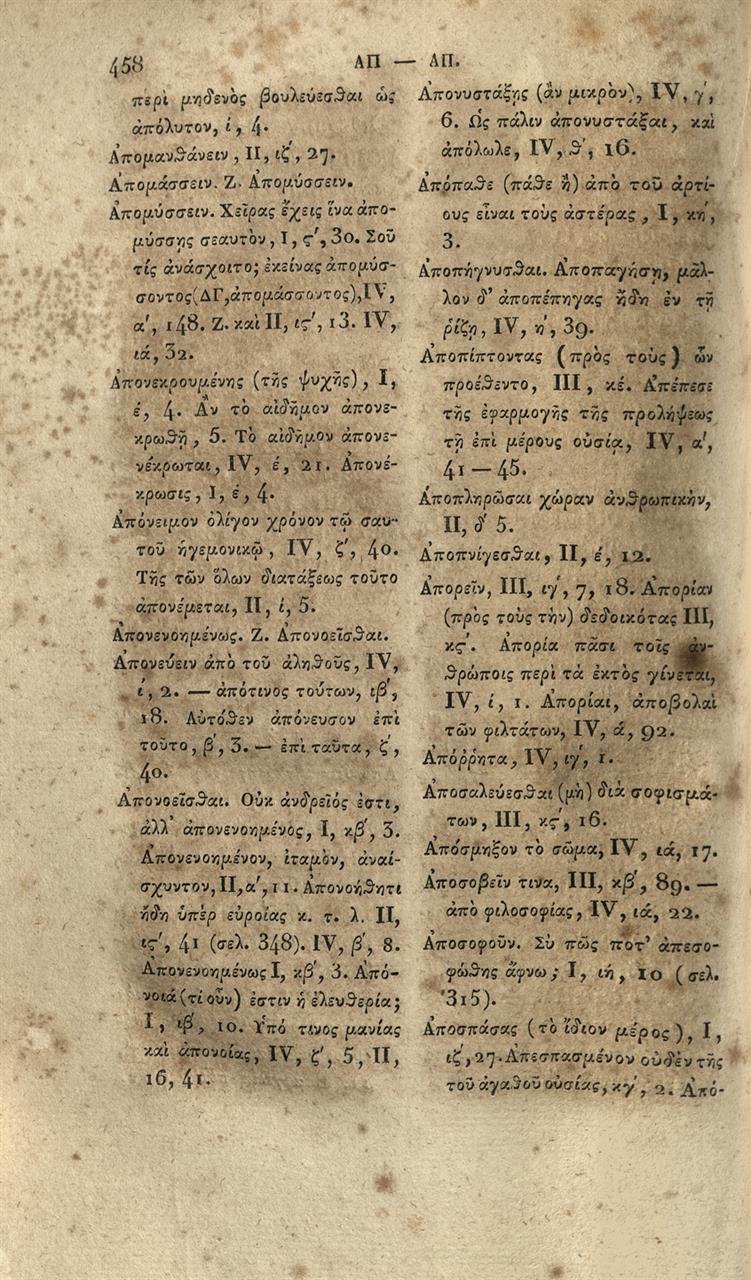 458
ΑΠ — ΑΠ.
περὶ μηδενὸς βουλεύεσθαι ὡς
ἀπόλυτον, ί, 4.
Ἀπομανθάνειν, II, ιζ', 27.
Ἀπομάσσειν. Ζ. Ἀπομύσσειν.
Ἀπομύσσειν. Χεῖρας ἔχεις ἵνα ἀπο-
μύσσῃς σεαυτὸν, I, ς', 30. Σοῦ
τίς ἀνάσχοιτο; ἐκείνας ἀπομύσ-
σοντος (ΔΓ, ἀπομάσσοντος), IV,
α', 148. Ζ. καὶ II, ις', 13. IV,
ιά, 32.
Ἀπονεκρουμένης (τῆς ψυχῆς), I,
έ, 4. Ἂν τὸ αἰδῆμον ἀπονε-
κρωθῇ, 5. Τὸ αἰδῆμον ἀπονε-
νέκρωται, IV, έ, 21. Ἀπονέ-
κρωσις, I, έ, 4.
Ἀπόνειμον ὀλίγον χρόνον τῷ σαυ-
τοῦ ἡγεμονικῷ, IV, ζ', 40.
Τῆς τῶν ὅλων διατάξεως τοῦτο
ἀπονέμεται, II, ί, 5.
Ἀπονενοημένως. Ζ. Ἀπονοεῖσθαι.
Ἀπονεύειν ἀπὸ τοῦ ἀληθοῦς, IV,
ί, 2. — ἀπότινος τούτων, ιβ',
18. Αὐτόθεν ἀπόνευσον ἐπὶ
τοῦτο, β', 3. — ἐπὶ ταῦτα, ζ',
40.
Ἀπονοεῖσθαι. Οὐκ ἀνδρεῖός ἐστι,
ἀλλ' ἀπονενοημένος, I, κβ', 3.
Ἀπονενοημένον, ἰταμὸν, ἀναί-
σχυντον, II, α', 11. Ἀπονοήθητι
ἤδη ὑπὲρ εὐροίας κ. τ. λ. II,
ις', 41 (σελ. 348). IV, β', 8.
Ἀπονενοημένως I, κβ', 3. Ἀπό-
νοιά (τί οὖν) ἐστιν ἡ ἐλευθερία;
I, ιβ', 10. Ὑπό τινος μανίας
καὶ ἀπονοίας, IV, ζ', 5, II,
16, 41.
Ἀπονυστάξῃς (ἂν μικρὸν), IV, γ',
6. Ὡς πάλιν ἀπονυστάξαι, καὶ
ἀπόλωλε, IV, θ', 16.
Ἀπόπαθε (πάθε ἢ) ἀπὸ τοῦ ἀρτί-
ους εἶναι τοὺς ἀστέρας, I, κή,
3.
Ἀποπήγνυσθαι. Ἀποπαγήσῃ, μᾶλ-
λον δ' ἀποπέπηγας ἤδη ἐν τῇ
ῥίζῃ, IV, ή, 39.
Ἀποπίπτοντας (πρὸς τοὺς) ὧν
προέθεντο, III, κέ. Ἀπέπεσε
τῆς ἐφαρμογῆς τῆς προλήψεως
τῇ ἐπὶ μέρους οὐσίᾳ, IV, α',
41 — 45.
Ἀποπληρῶσαι χώραν ἀνθρωπικὴν,
II, δ' 5.
Ἀποπνίγεσθαι, II, έ, 12.
Ἀπορεῖν, III, ιγ', 7, 18. Ἀπορίαν
(πρὸς τοὺς τὴν) δεδοικότας III,
κς'. Ἀπορία πᾶσι τοῖς ἀν-
θρώποις περὶ τὰ ἐκτὸς γίνεται,
IV, ί, 1. Ἀπορίαι, ἀποβολαὶ
τῶν φιλτάτων, IV, ά, 92.
Ἀπόῤῥητα, IV, ιγ', 1.
Ἀποσαλεύεσθαι (μὴ) διὰ σοφισμά-
των, III, κς', 16.
Ἀπόσμηξον τὸ σῶμα, IV, ιά, 17.
Ἀποσοβεῖν τινα, III, κβ', 89. —
ἀπὸ φιλοσοφίας, IV, ιά, 22.
Ἀποσοφοῦν. Σὺ πῶς ποτ' ἀπεσο-
φώθης ἄφνω; I, ιή, 10 (σελ.
315).
Ἀποσπάσας (τὸ ἴδιον μέρος), I,
ιζ', 27. Ἀπεσπασμένον οὐδὲν τῆς
τοῦ ἀγαθοῦ οὐσίας, κγ', 2. Ἀπό-